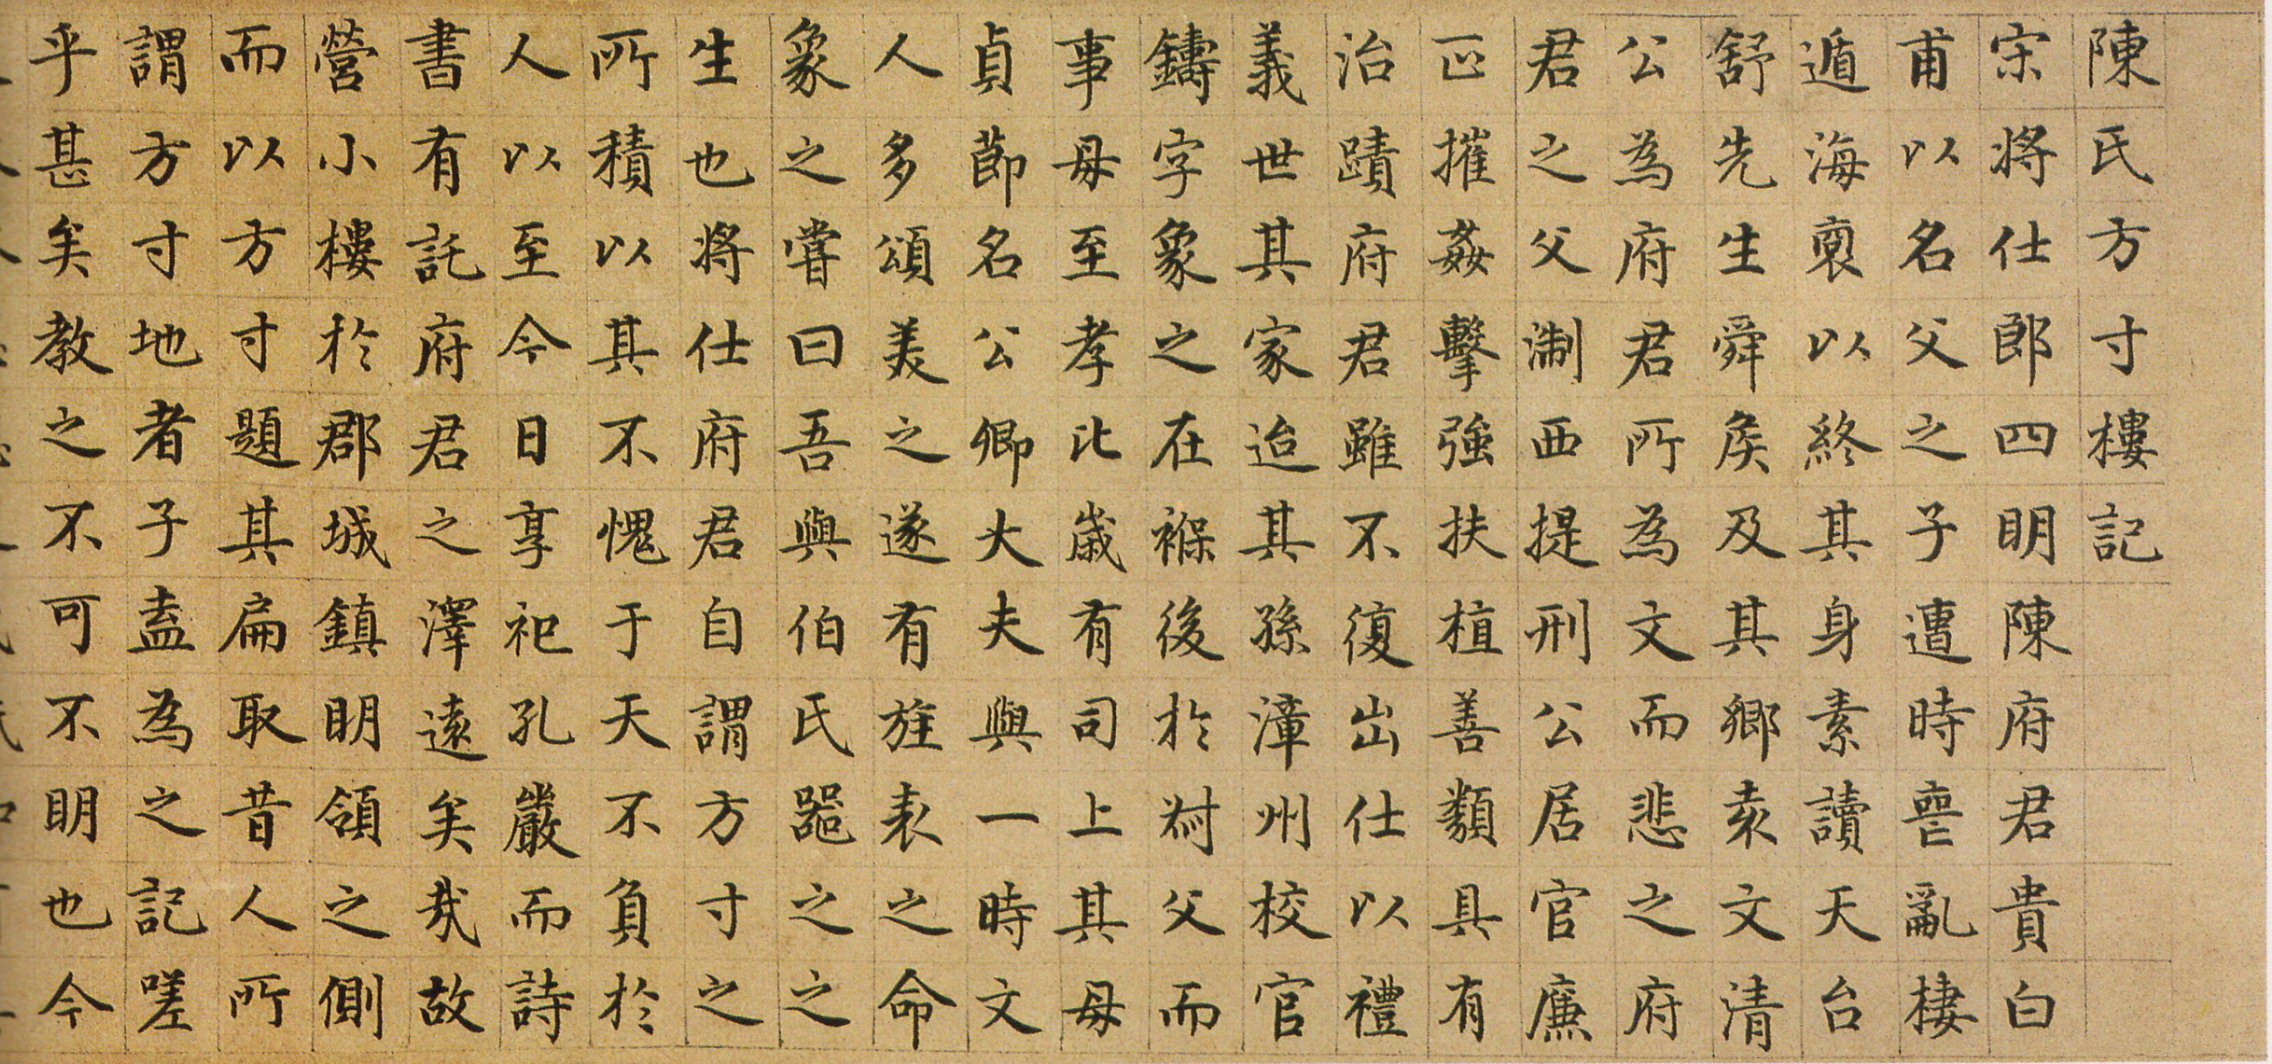 陳氏方寸樓記
宋將仕郎四明陳府君貴白
甫以名父之子遭時喪亂棲
遁海裔以終其身素讀天台
舒先生舜矦及其鄉袁文清
公為府君所為文而悲之府
君之父淛西提刑公居官廉
正摧姦擊強扶植善類具有
治蹟府君雖不復出仕以禮
義世其家迨其孫漳州校官
鑄字象之在褓後於尌父而
事母至孝比歲有司上其母
貞節名公卿大夫與一時文
人多頌美之遂有旌表之命
象之嘗曰吾與伯氏器之之
生也將仕府君自謂方寸之
所積以其不愧于天不負於
人以至今日享祀孔嚴而詩
書有託府君之澤遠矣哉故
營小樓於郡城鎮明領之側
而以方寸題其扁取昔人所
謂方寸地者子盍為之記嗟
乎甚矣教之不可不明也今